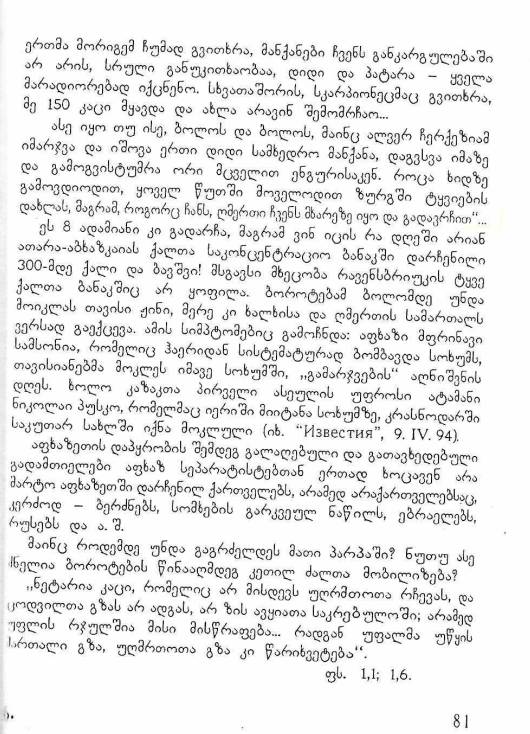 ერთმა მორიგემ ჩუმად გვითხრა, მანქანები ჩვენს განკარგულებაში
არ არის, სრული განუკითხაობაა, დიდი და პატარა – ყველა
მარადიორებად იქცნენო. სხვათაშორის, სკარპიონეცმაც გვითხრა,
მე 150 კაცი მყავდა და ახლა არავინ შემომრჩაო...
ასე იყო თუ ისე, ბოლოს და ბოლოს, მაინც ალვერ ჩერქეზიამ
იმარჯვა და იშოვა ერთი დიდი სამხედრო მანქანა, დაგვსვა იმაზე
და გამოგვისტუმრა ორი მცველით ენგურისაკენ. როცა ხიდზე
გამოვდიოდით, ყოველ წუთში მოველოდით ზურგში ტყვიების
დახლას, მაგრამ, როგორც ჩანს, ღმერთი ჩვენს მხარეზე იყო და გადავრჩით“...
ეს 8 ადამიანი კი გადარჩა, მაგრამ ვინ იცის რა დღეში არიან
ათარა-აბხაზკაიას ქალთა საკონცენტრაციო ბანაკში დარჩენილი
300-მდე ქალი და ბავშვი! მსგავსი მხეცობა რავენსბრიუკის ტყვე
ქალთა ბანაკშიც არ ყოფილა. ბოროტებამ ბოლომდე უნდა
მოიკლას თავისი ჟინი, მერე კი ხალხისა და ღმერთის სამართალს
ვერსად გაექცევა. ამის სიმპტომებიც გამოჩნდა: აფხაზი მფრინავი
სამსონია, რომელიც ჰაერიდან სისტემატურად ბომბავდა სოხუმს,
თავისიანებმა მოკლეს იმავე სოხუმში, „გამარჯვების“ აღნიშვნის
დღეს. ხოლო კაზაკთა პირველი ასეულის უფროსი ატამანი
ნიკოლაი პუსკო, რომელმაც იერიში მიიტანა სოხუმზე, კრასნოდარში
საკუთარ სახლში იქნა მოკლული (იხ. "Известия", 9. IV. 94).
აფხაზეთის დაპყრობის შემდეგ გალაღებული და გათავხედებული
გადამთიელები აფხაზ სეპარატისტებთან ერთად ხოცავენ არა
მარტო აფხაზეთში დარჩენილ ქართველებს, არამედ არაქართველებსაც,
კერძოდ – ბერძნებს, სომხების გარკვეულ ნაწილს, ებრაელებს,
რუსებს და ა. შ.
მაინც როდემდე უნდა გაგრძელდეს მათი პარპაში? ნუთუ ასე
ძნელია ბოროტების წინააღმდეგ კეთილ ძალთა მობილიზება?
„ნეტარია კაცი, რომელიც არ მისდევს უღრმთოთა რჩევას, და
ცოდვილთა გზას არ ადგას, არ ზის ავყიათა საკრებულოში; არამედ
უფლის რჯულშია მისი მისწრაფება... რადგან უფალმა უწყის
მართალი გზა, უღმრთოთა გზა კი წარიხვეტება“.
ფს. 1,1; 1,6.
81